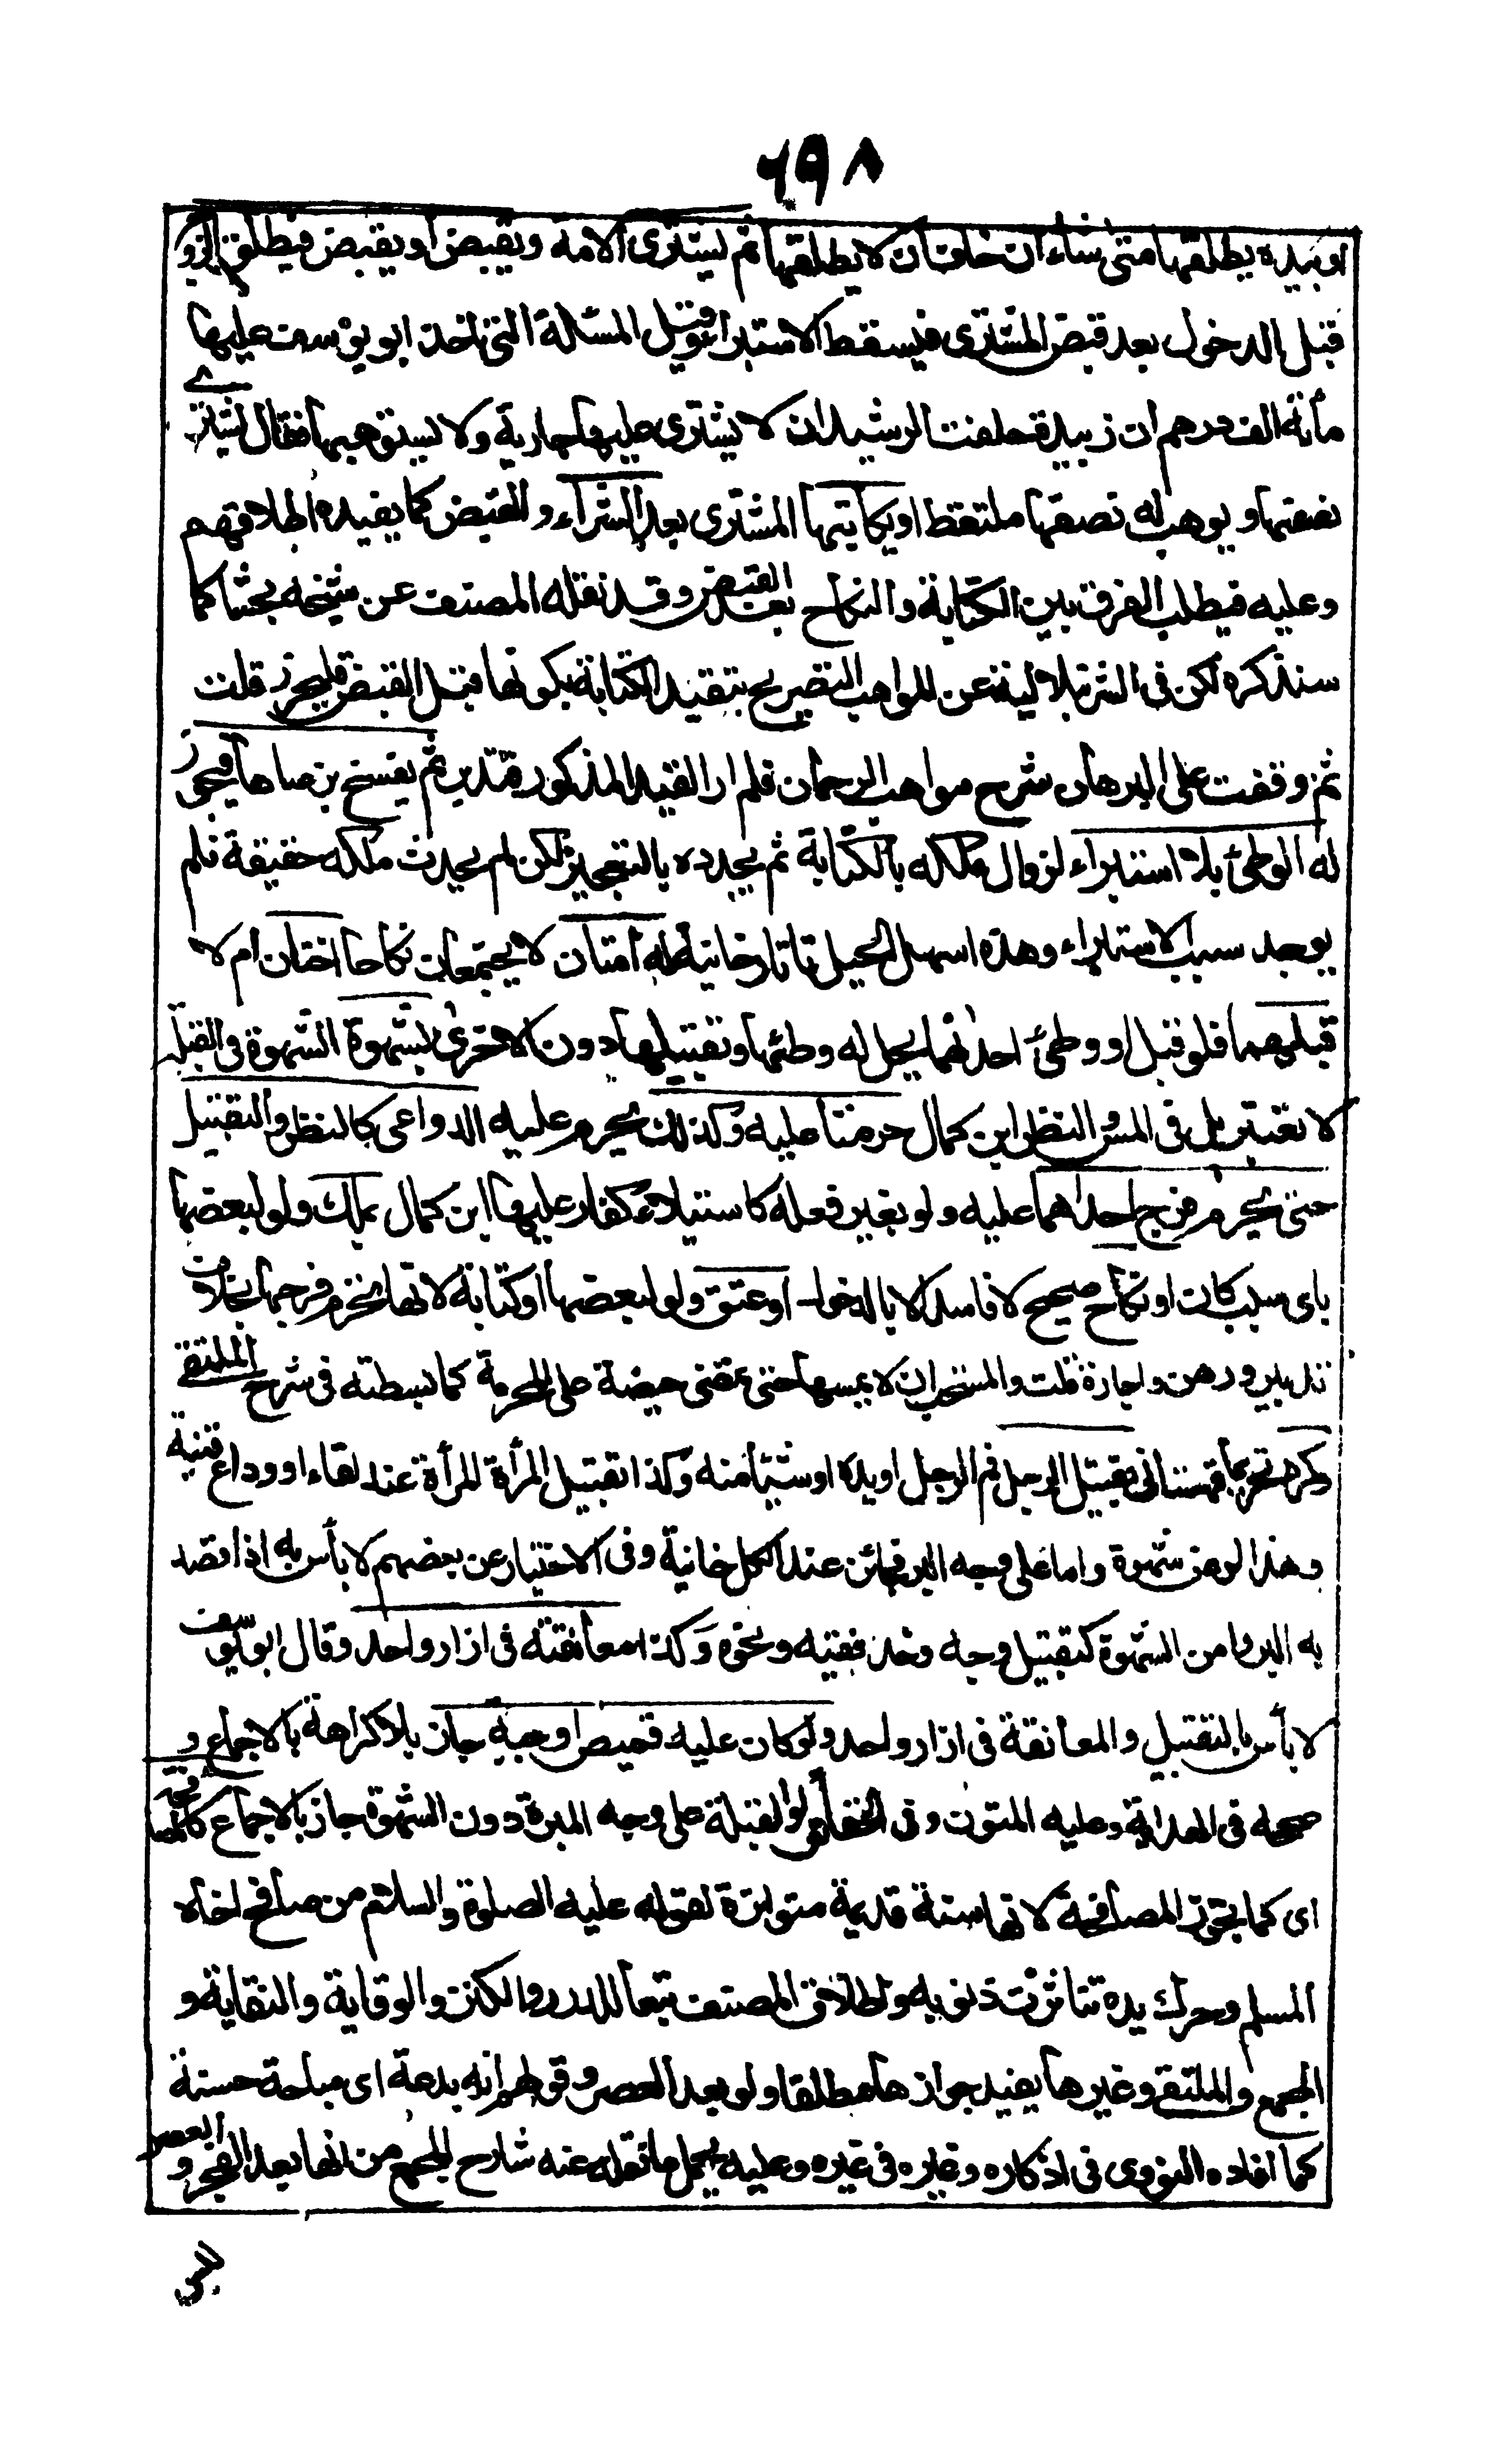 ٦٩٨
او بيده يطلقها متى شاء ان خاف ان لا يطلقها ثم يشترى الامة ويقبض او يقبض فيطلق الزوج
قبل الدخول بعد قبض المشترى فيسقط الاستبراء وقيل المسئلة التى اخذ ابو يوسف عليها
مأئة الف درهم ان زبيدة حلفت الرشيد ان لا يشترى عليها جارية ولا يستوهبها فقال يشترى
نصفها ويوهب له نصفها ملتقط او يكاتبها المشترى بعد الشراء والقبض كما يفيده اطلاقهم
وعليه فيطلب الفرق بين الكتابة والنكاح بعد القبض وقد نقله المصنف عن شيخه بحثا كما
سنذكره لكن فى الشرنبلالية عن المواهب التصريح بتقييد الكتابة بكونها قبل القبض فليحرر قلت
ثم وقفت على البرهان شرح مواهب الرحمان فلم ار القيد المذكور فتدبر ثم يفسخ برضاها فيجوز
له الوطئ بلا استبراء لزوال ملكه بالكتابة ثم يجدده بالتعجيز لكن لم يحدث ملكه حقيقة فلم
يوجد سبب الاستبراء وهذه اسهل الحيل تاتارخانية له امتان لا يجتمعان نكاحا اختان ام لا
قبلهما فلو قبل او وطئ احدٰهما يحل له وطئها وتقبيلها دون الاخرىٰ بشهوة الشهوة فى القبلة
لا تعتبر بل فى المس والنظر ابن كمال حرمتا عليه وكذلك يحرم عليه الدواعى كالنظر والتقبيل
حتى يحرم فرج احداهما عليه ولو بغير فعله كاستيلاء كفار عليها ابن كمال بملك ولو لبعضها
باى سبب كان او نكاح صحيح لا فاسد الا بالدخول او عتق ولو لبعضها او كتابة لانها تحرم فرجها بخلاف
تدبير ورهن واجارة قلت والمستحب ان لا يمسها حتى تمضى حيضة على المحرمة كما بسطته فى شرح الملتقى
وكره تحريما قهستانى تقبيل الرجل فم الرجل او يده او شيئا منه وكذا تقبيل المرأة للمرأة عند لقاء او وداع قنية
وهذا لو عن شهوة واما على وجه البر فجائز عند الكل خانية وفى الاختيار عن بعضهم لا بأس به اذا قصد
به البر وامن الشهوة كتقبيل وجه وخد فقيه ونحوه وكذا معانقته فى ازار واحد وقال ابو يوسف
لا بأس بالتقبيل والمعانقة فى ازار واحد ولو كان عليه قميص او جبة جاز بلا كراهة بالاجماع و
صححه فى الهداية وعليه المتون وفى الحقائق لو القبلة على وجه المبرة دون الشهوة جاز بالاجماع كالمصافحة
اى كما تجوز المصافحة لانها سنة قديمة متواترة لقوله عليه الصلوة والسلام من صافح اخاه
المسلم وحرك يده تناثرت ذنوبه واطلاق المصنف تبعا للدرر والكنز والوقاية والنقاية و
المجمع والملتقى وغيرها يفيد جوازها مطلقا ولو بعد العصر وقولهم انه بدعة اى مباحة حسنة
كما افاده النووى فى اذكاره وغيره فى غيره وعليه يحمل ما نقله عنه شارح المجمع من انها بعد الفجر و العصر